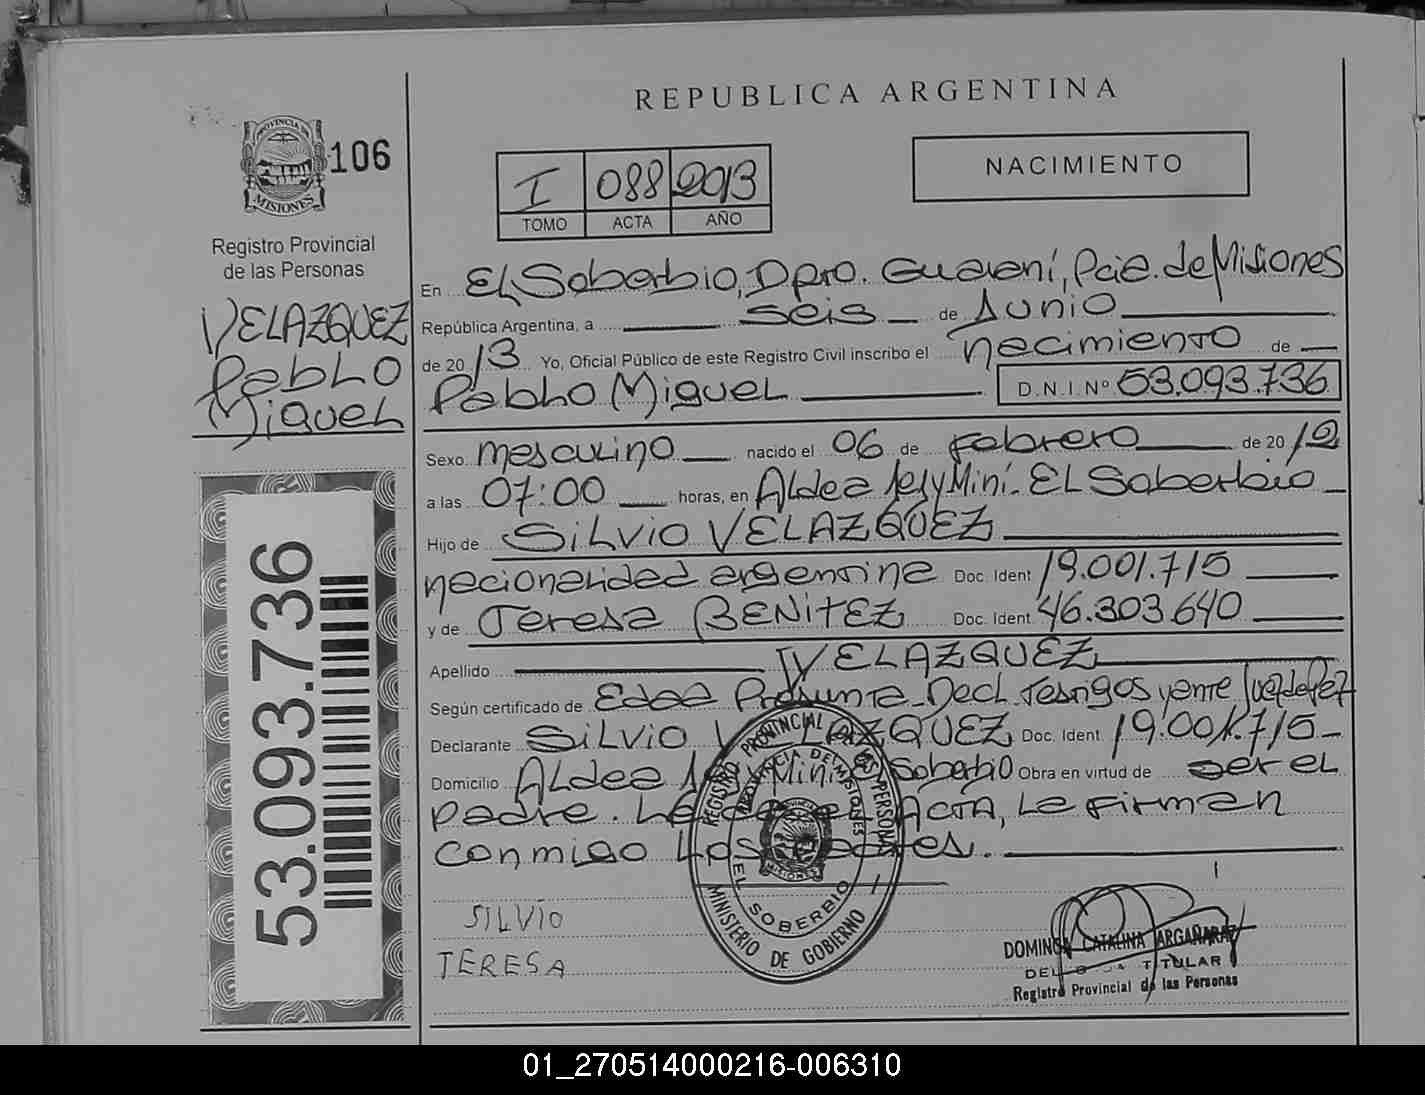 REPUBLICA ARGENTINA
PROVINCIA DE
MISIONES
106
Registro Provincial
de las Personas
VELAZQUEZ
Pablo
Miguel
53.093.736
I 088 2013
TOMO ACTA AÑO
NACIMIENTO
En El Soberbio, Dpto. Guaraní, Pcia. de Misiones
República Argentina, a seis de Junio
de 2013 Yo, Oficial Público de este Registro Civil inscribo el nacimiento de
Pablo Miguel D.N.I.Nº 53.093.736
Sexo masculino nacido el 06 de febrero de 2012
a las 07:00 horas, en Aldea Miní. El Soberbio
Hijo de Silvio VELAZQUEZ
nacionalidad argentina Doc. Ident 19.001.715
y de Teresa BENITEZ Doc. Ident. 46.303.640
Apellido VELAZQUEZ
Según certificado de Edad Presunta. Decl. Testigos y ante Juez de Paz
Declarante Silvio VELAZQUEZ Doc. Ident. 19.001.715
Domicilio Aldea Miní El Soberbio Obra en virtud de ser el
padre. ACTA, La firman
conmigo Los padres.
SILVIO
TERESA
REGISTRO PROVINCIAL DE LAS PERSONAS
PROVINCIA DE MISIONES
MISIONES
EL SOBERBIO
MINISTERIO DE GOBIERNO
DOMINGA CATALINA ARGAÑARAZ
TITULAR
Registro Provincial de las Personas
01_270514000216-006310